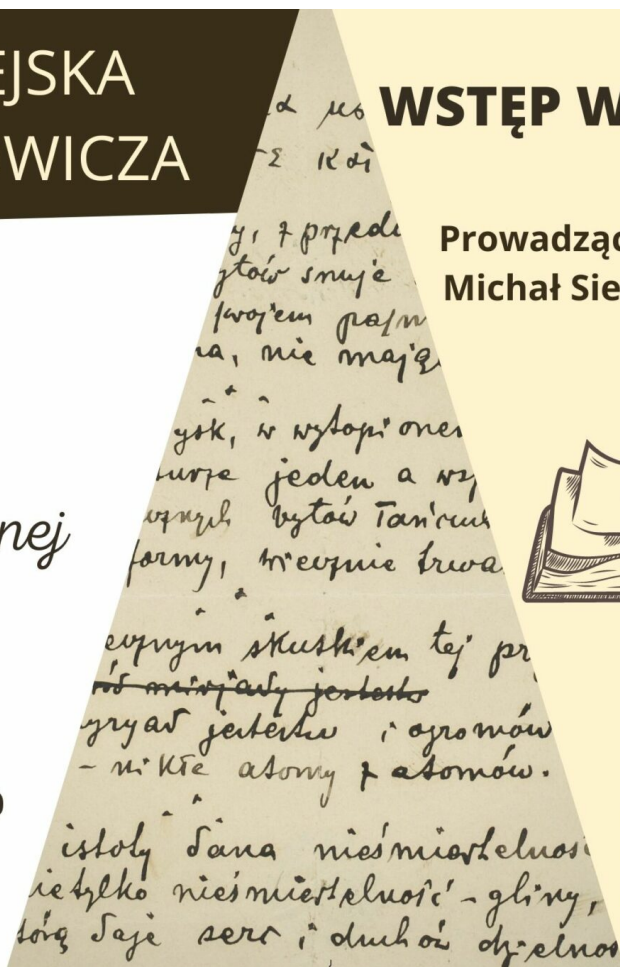 EJSKA
WICZA
WSTĘP W
Prowadząc
Michał Sie
nej
y, z przedu
ytów snuje
swojem pasm
na, nie mają
ysk, w wytopionem
jeden a
bytów łańcuch
formy, wiecznie trwa
ecznym skutkiem tej pr
miryady jestestw
yryad jestestw i ogromów
- nikłe atomy z atomów.
istoty dana nieśmiertelność
ietylko nieśmiertelność - gliny,
tórą daje serc i duchów dzielnoś